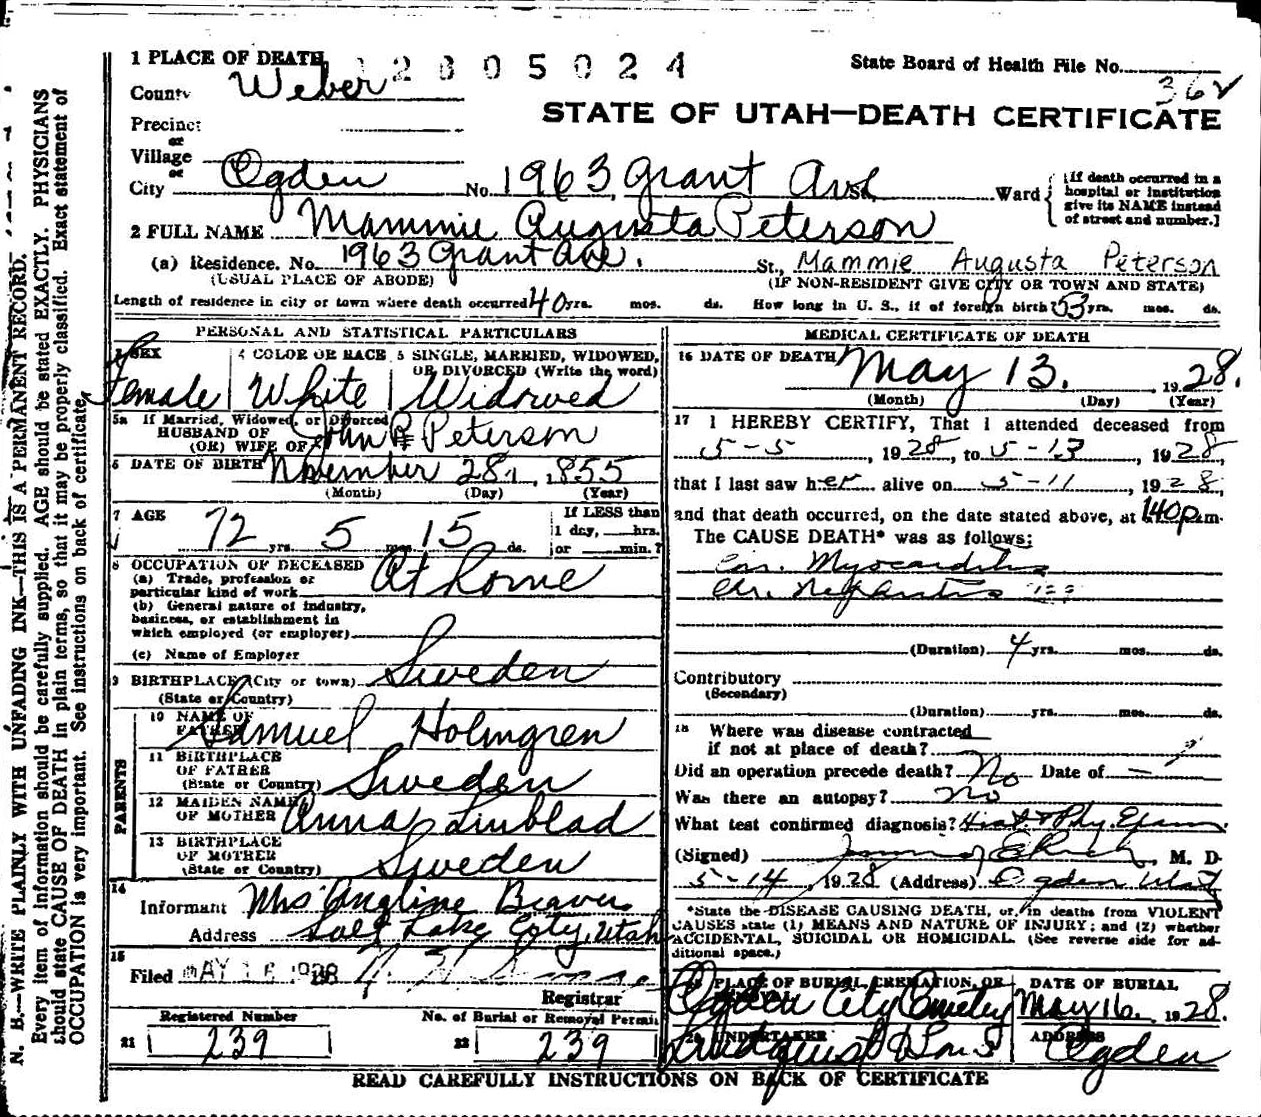 1 PLACE OF DEATH 2805024 State Board of Health File No. 362
County Weber
STATE OF UTAH—DEATH CERTIFICATE
Precinct
or
Village
or
City Ogden No. 1963 Grant Ave Ward
[If death occurred in a
hospital or institution
give its NAME instead
of street and number.]
2 FULL NAME Mammie Augusta Peterson
(a) Residence. No. 1963 Grant Ave. St., Mammie Augusta Peterson
(USUAL PLACE OF ABODE) (IF NON-RESIDENT GIVE CITY OR TOWN AND STATE)
Length of residence in city or town where death occurred 40 yrs. mos. ds. How long in U. S., if of foreign birth? 53 yrs. mos. ds.
PERSONAL AND STATISTICAL PARTICULARS
3 SEX 4 COLOR OR RACE 5 SINGLE, MARRIED, WIDOWED,
OR DIVORCED (Write the word)
Female White Widowed
5a If Married, Widowed, or Divorced
HUSBAND OF
(OR) WIFE OF John P Peterson
6 DATE OF BIRTH November 28, 1855
(Month) (Day) (Year)
7 AGE 72 yrs. 5 mos. 15 ds.
If LESS than
1 day, hrs.
or min.?
8 OCCUPATION OF DECEASED
(a) Trade, profession or
particular kind of work At home
(b) General nature of industry,
business, or establishment in
which employed (or employer)
(c) Name of Employer
9 BIRTHPLACE (City or town) Sweden
(State or Country)
PARENTS
10 NAME OF
FATHER Samuel Holmgren
11 BIRTHPLACE
OF FATHER
(State or Country) Sweden
12 MAIDEN NAME
OF MOTHER Anna Linblad
13 BIRTHPLACE
OF MOTHER
(State or Country) Sweden
14
Informant Mrs Angline Beavers
Address Salt Lake City, Utah
15
Filed MAY 16 1928
Registrar
Registered Number No. of Burial or Removal Permit
21 239 22 239
MEDICAL CERTIFICATE OF DEATH
16 DATE OF DEATH May 13. 1928.
(Month) (Day) (Year)
17 I HEREBY CERTIFY, That I attended deceased from
5-5, 1928, to 5-13, 1928,
that I last saw her alive on 5-11, 1928,
and that death occurred, on the date stated above, at 140 p.m.
The CAUSE DEATH* was as follows:
Myocarditis
Chr. Nephritis
(Duration) 4 yrs. mos. ds.
Contributory
(Secondary)
(Duration) yrs. mos. ds.
18 Where was disease contracted
if not at place of death?
Did an operation precede death? No Date of —
Was there an autopsy? No
What test confirmed diagnosis? Hist. & Phy. Exam.
(Signed) , M. D.
5-14, 1928 (Address) Ogden Utah
*State the DISEASE CAUSING DEATH, or, in deaths from VIOLENT
CAUSES state (1) MEANS AND NATURE OF INJURY; and (2) whether
ACCIDENTAL, SUICIDAL OR HOMICIDAL. (See reverse side for ad-
ditional space.)
19 PLACE OF BURIAL, CREMATION, OR DATE OF BURIAL
Ogden City Cemetery May 16. 1928.
20 UNDERTAKER ADDRESS
Lindquist & Sons Ogden
READ CAREFULLY INSTRUCTIONS ON BACK OF CERTIFICATE
N. B.—WRITE PLAINLY WITH UNFADING INK—THIS IS A PERMANENT RECORD.
Every item of information should be carefully supplied. AGE should be stated EXACTLY. PHYSICIANS
should state CAUSE OF DEATH in plain terms, so that it may be properly classified. Exact statement of
OCCUPATION is very important. See instructions on back of certificate.